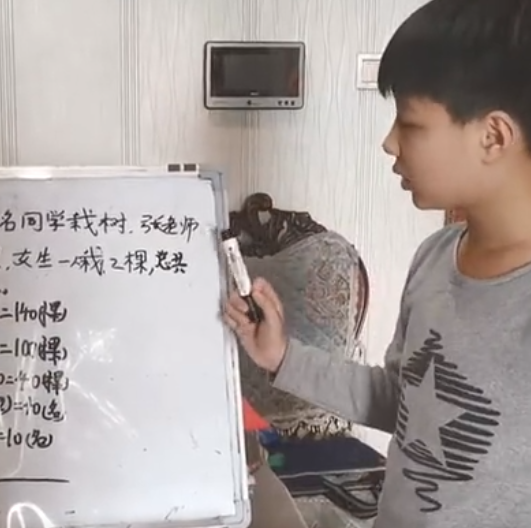 名同学栽树.张老师
女生一人栽2棵,总共
=140(棵)
=100(棵)
=40(棵)
)=10(名
=10(名)